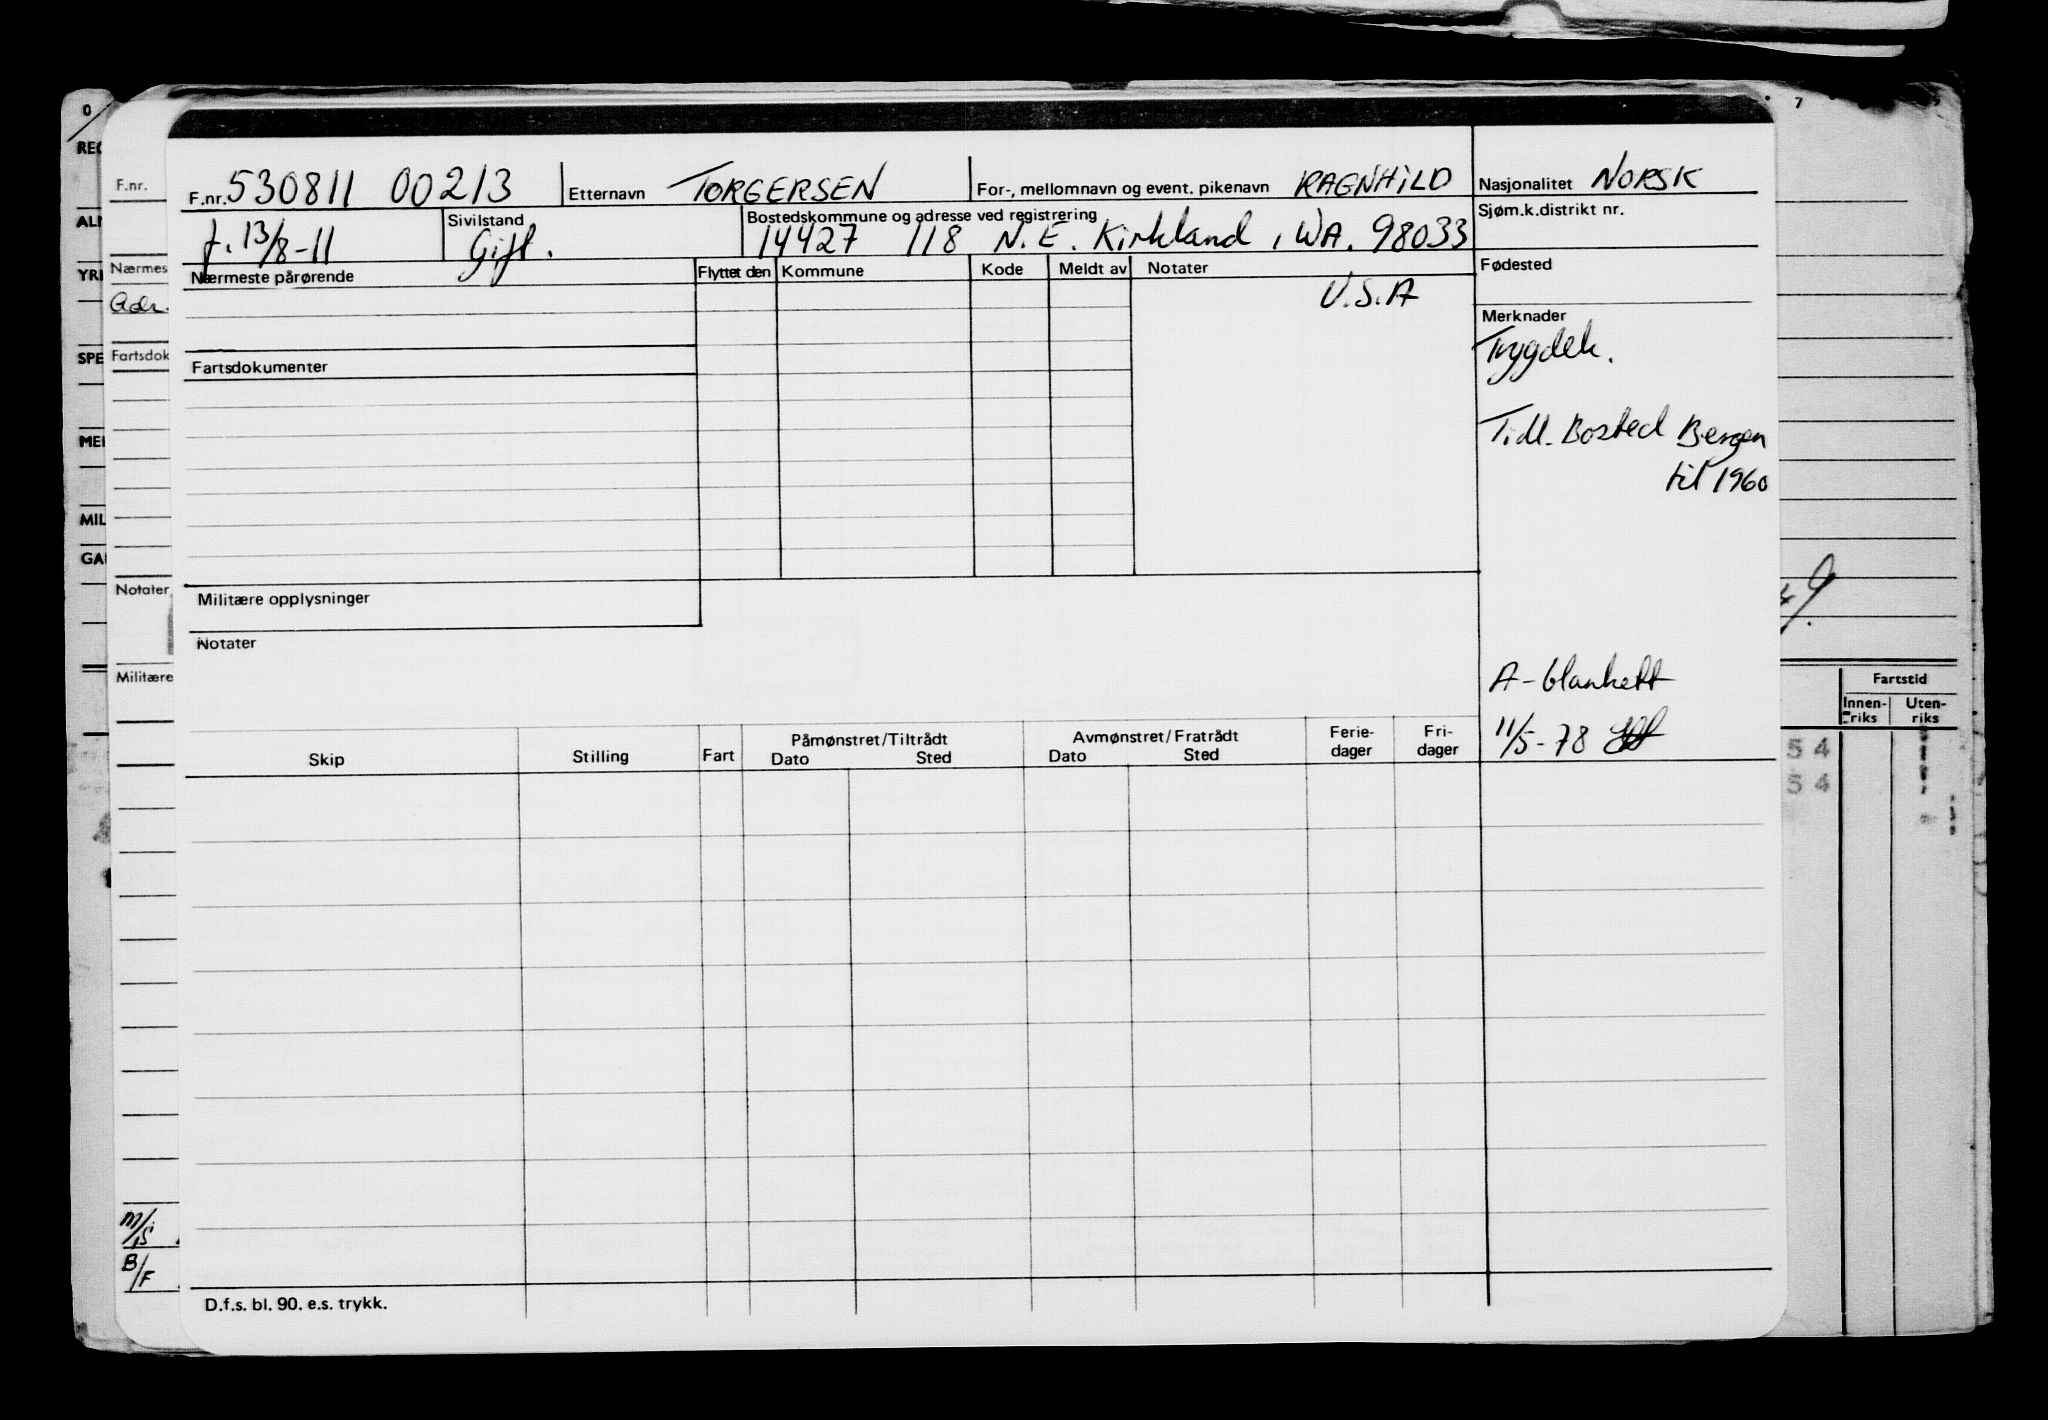 F.nr. 530811 00213 Etternavn TORGERSEN For-, mellomnavn og event. pikenavn RAGNHILD Nasjonalitet NORSK
f. 13/8-11 Sivilstand Gift. Bostedskommune og adresse ved registrering 14427 118 N.E. Kirkland, WA. 98033 Sjøm.k.distrikt nr.
Nærmeste pårørende Flyttet den Kommune Kode Meldt av Notater Fødested
U.S.A
Merknader
Trygdek.
Fartsdokumenter
Tidl. Bosted Bergen
til 1960
Militære opplysninger
Notater
A-blankett
11/5-78
Skip Stilling Fart Påmønstret/Tiltrådt Dato Sted Avmønstret/Fratrådt Dato Sted Ferie-dager Fri-dager
D.f.s. bl. 90. e.s. trykk.
0
REG
F.nr.
Nærmes
Adr.
SPE
Fartsdok
MIL
Notater
Militære
M/S
B/F
7
Fartstid
Innen-riks Uten-riks
54
54